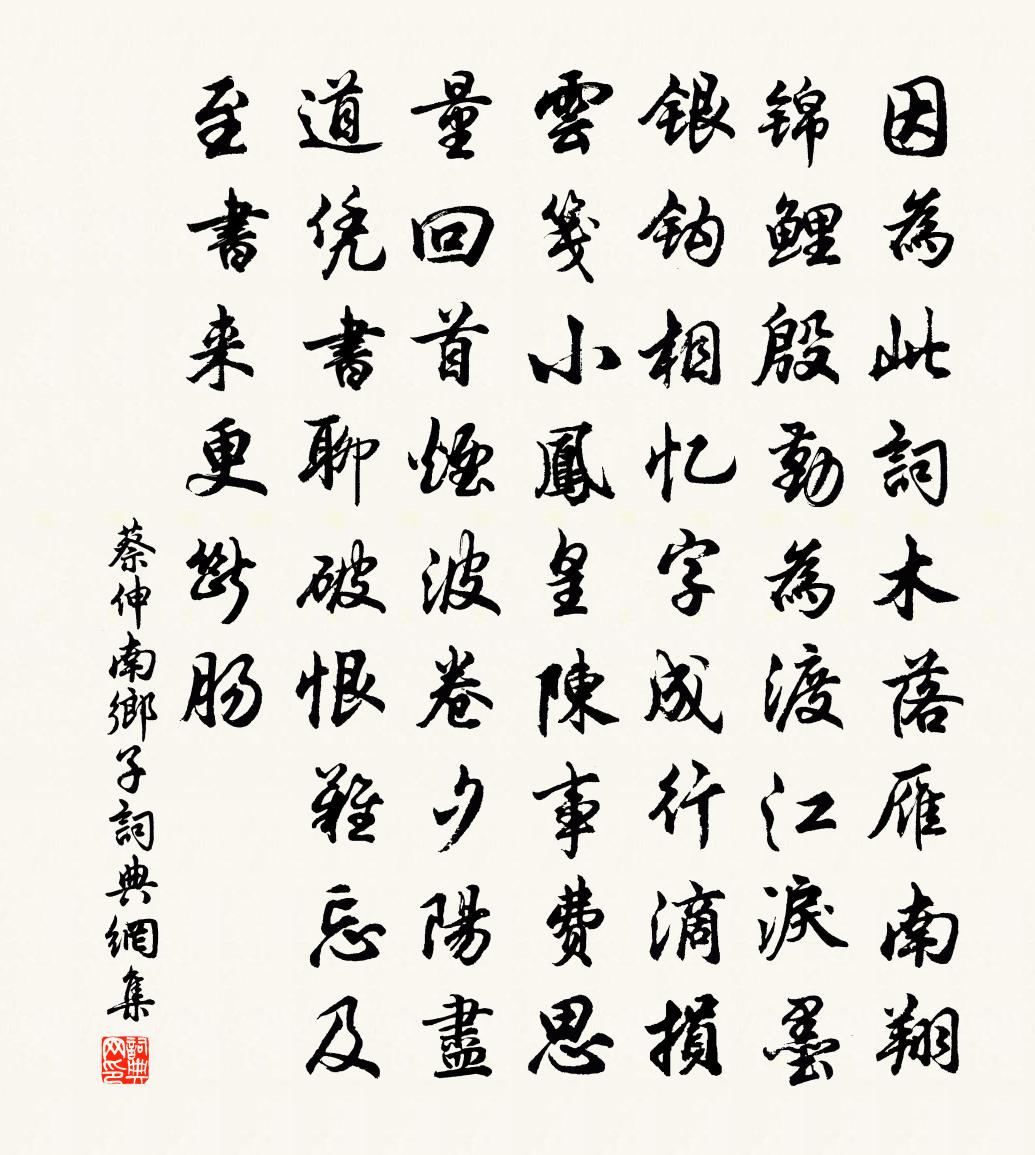 因為此詞木落雁南翔
锦鲤殷勤為渡江淚墨
银钩相忆字成行滴損
雲箋小鳳皇陳事費思
量回首煙波卷夕陽盡
道凭書聊破恨難忘及
至書来更斷肠
蔡伸南鄉子詞典網集
詞典网印